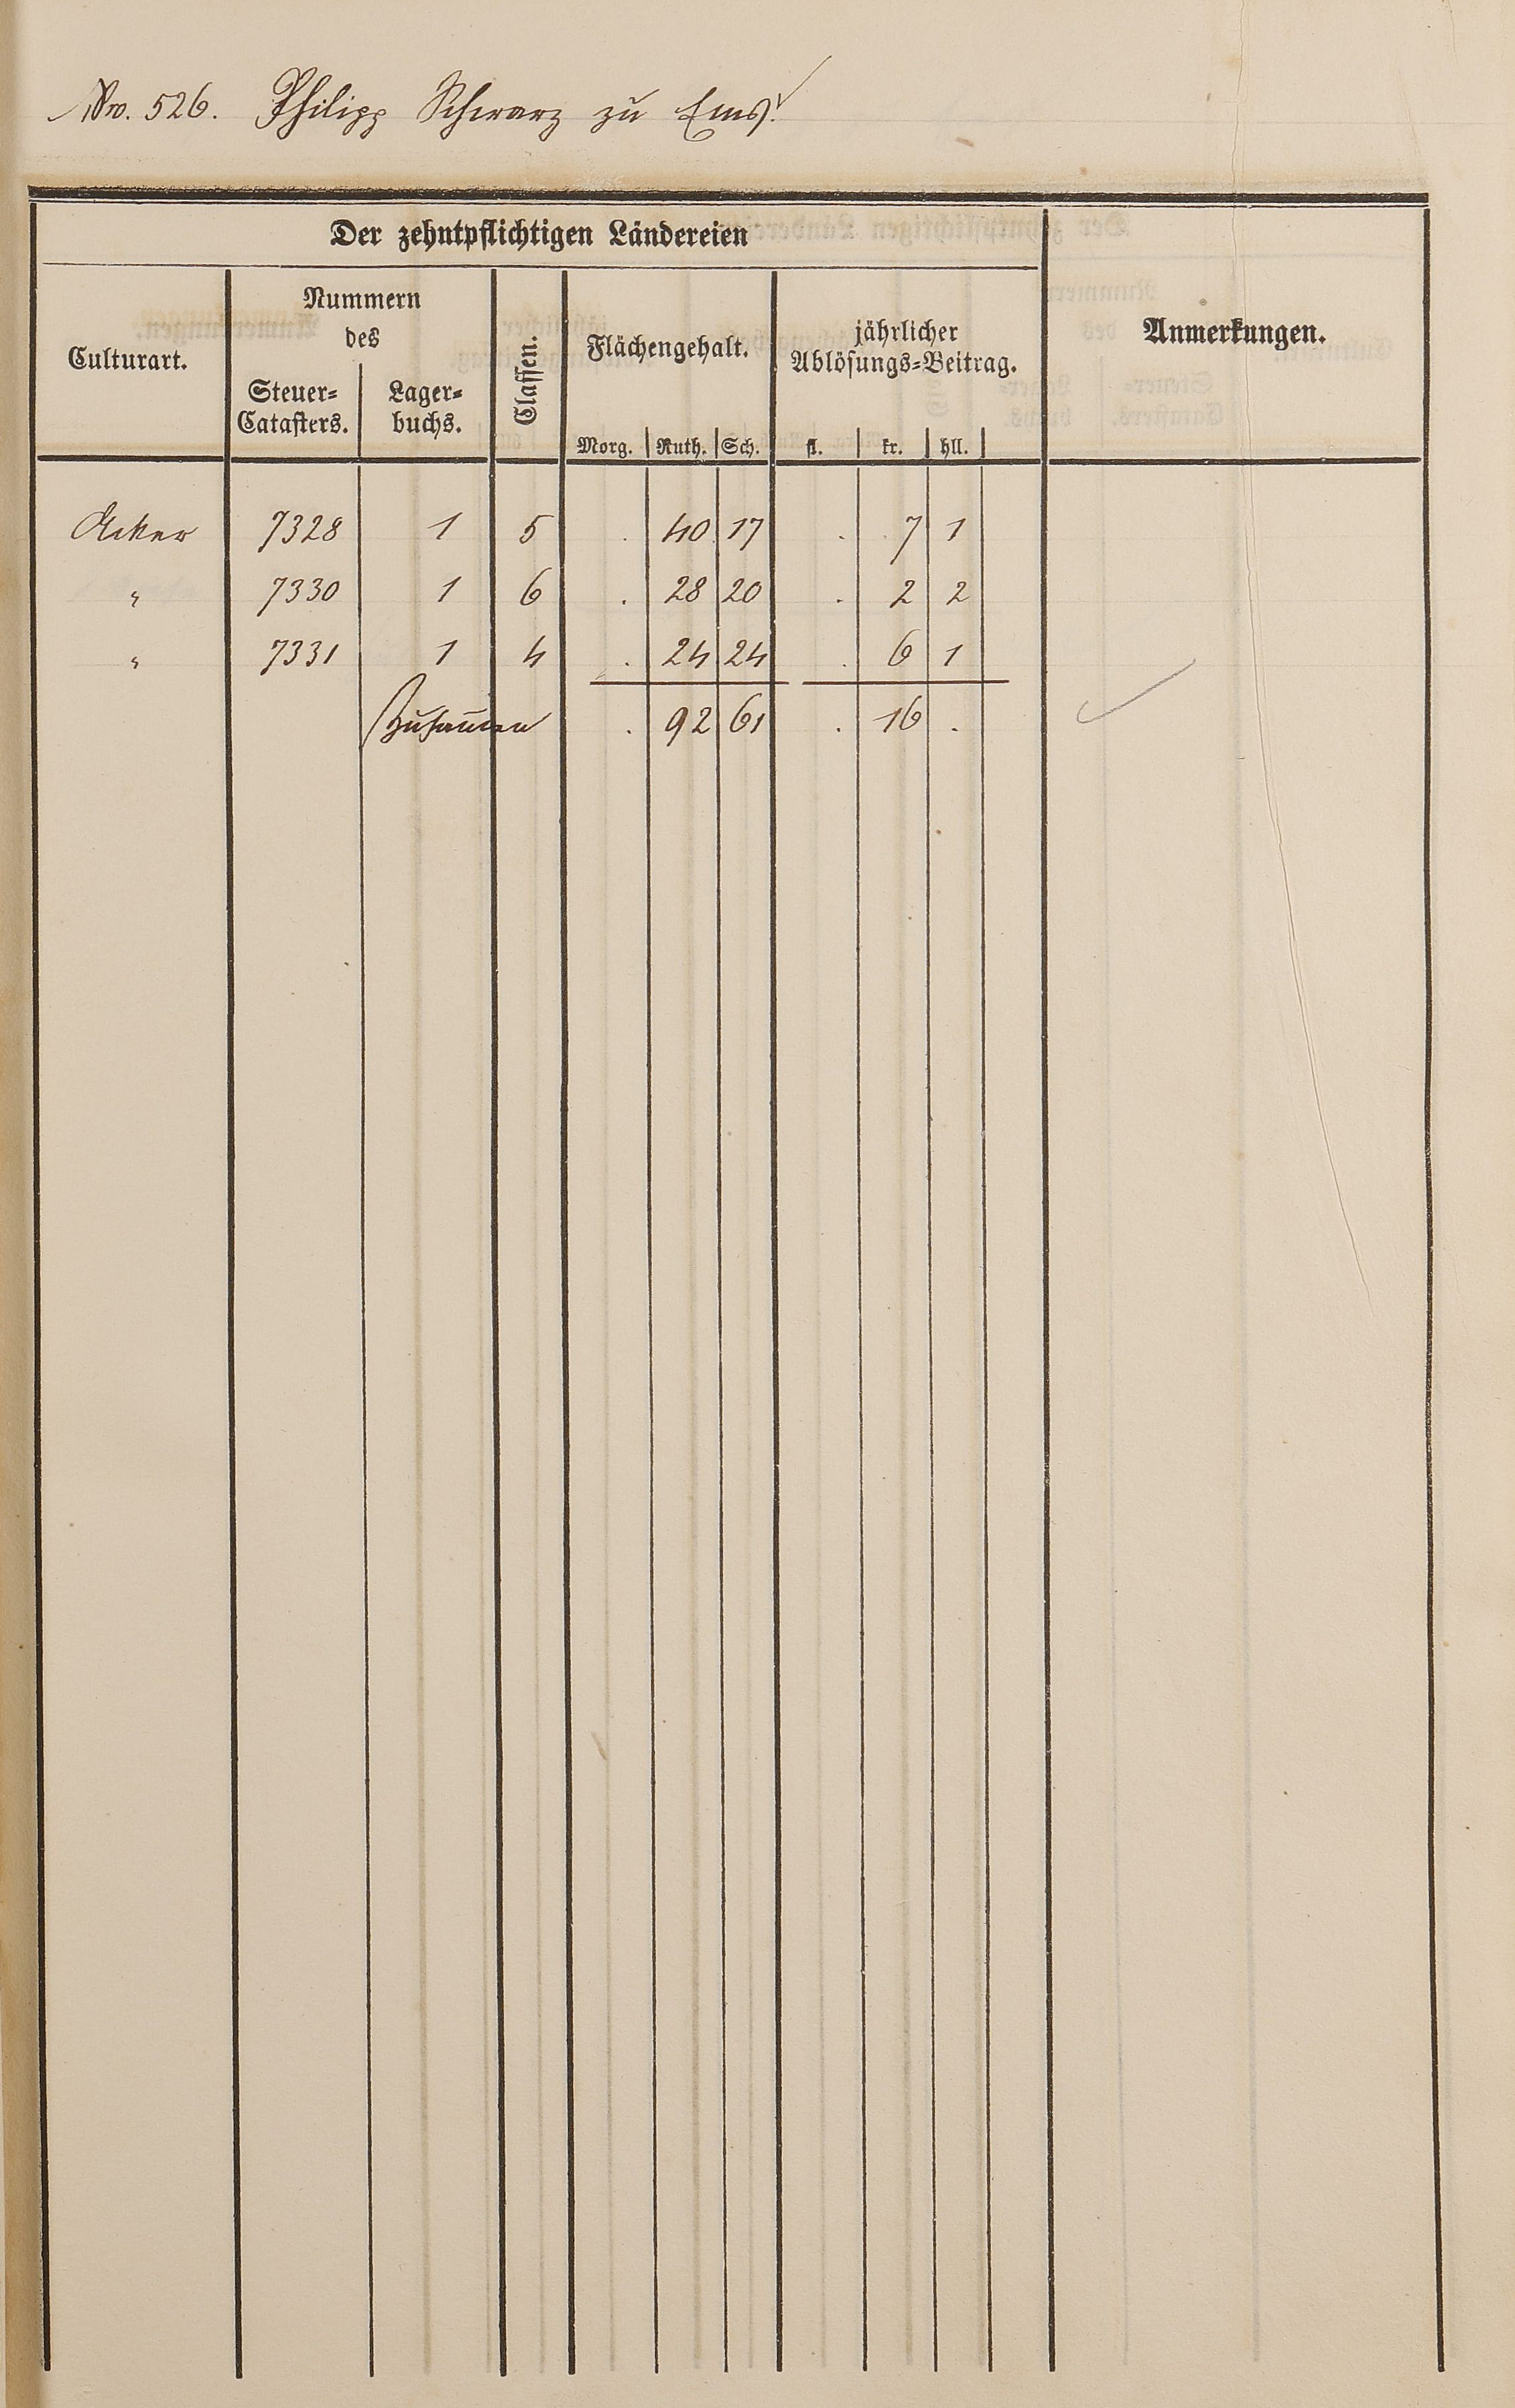 Nro. 526. Philipp Schwarz zu Ems.
Der zehntpflichtigen Ländereien
Culturart.
Nummern
des
Steuer=
Catasters.
Lager=
buchs.
Classen.
Flächengehalt.
Morg. Ruth. Sch.
jährlicher
Ablösungs=Beitrag.
fl. kr. hll.
Anmerkungen.
Acker 7328 1 5 . 40 17 . 7 1
" 7330 1 6 . 28 20 . 2 2
" 7331 1 4 . 24 24 . 6 1
Zusam̄en . 92 61 . 16 .